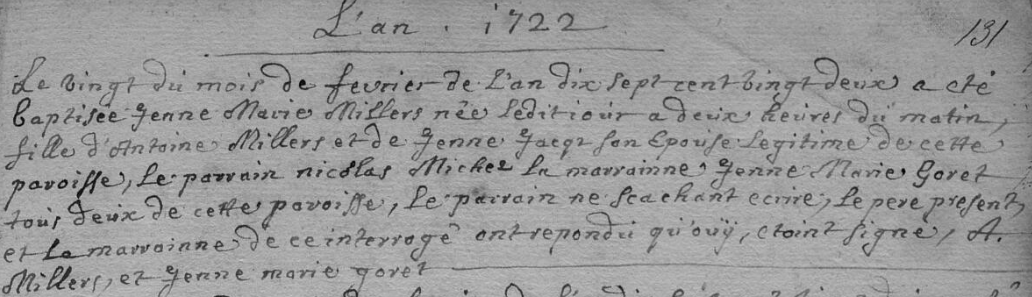 L'an . 1722
131
Le vingt du mois de fevrier de L'an dix sept cent vingt deux a eté
baptisée Jenne Marie Millers née ledit iour a deux heures du matin,
fille d'Antoine Millers et de Jenne Jacqz son Epouse Legitime de cette
paroisse, Le parrain nicolas Michel La marrainne Jenne Marie Goret
tous deux de cette paroisse, Le parrain ne scachant ecrire, Le pere present,
et La marrainne de ce interrogé ont repondu qu'ouÿ, etoint signé, A.
Millers, et Jenne marie goret